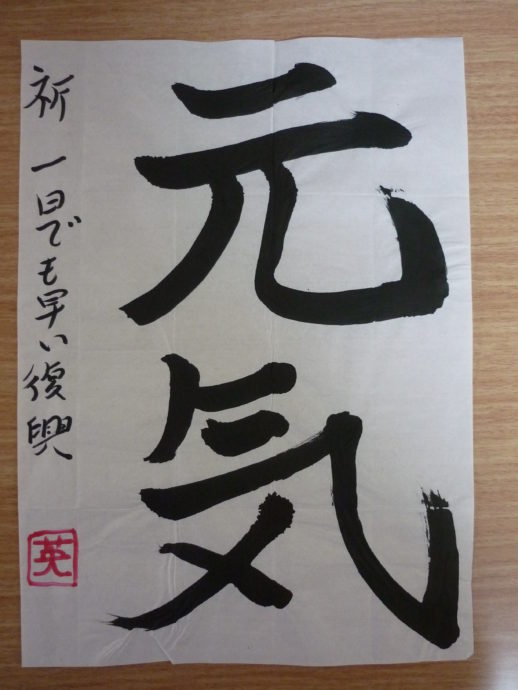 元気
祈 一日でも早い復興
英